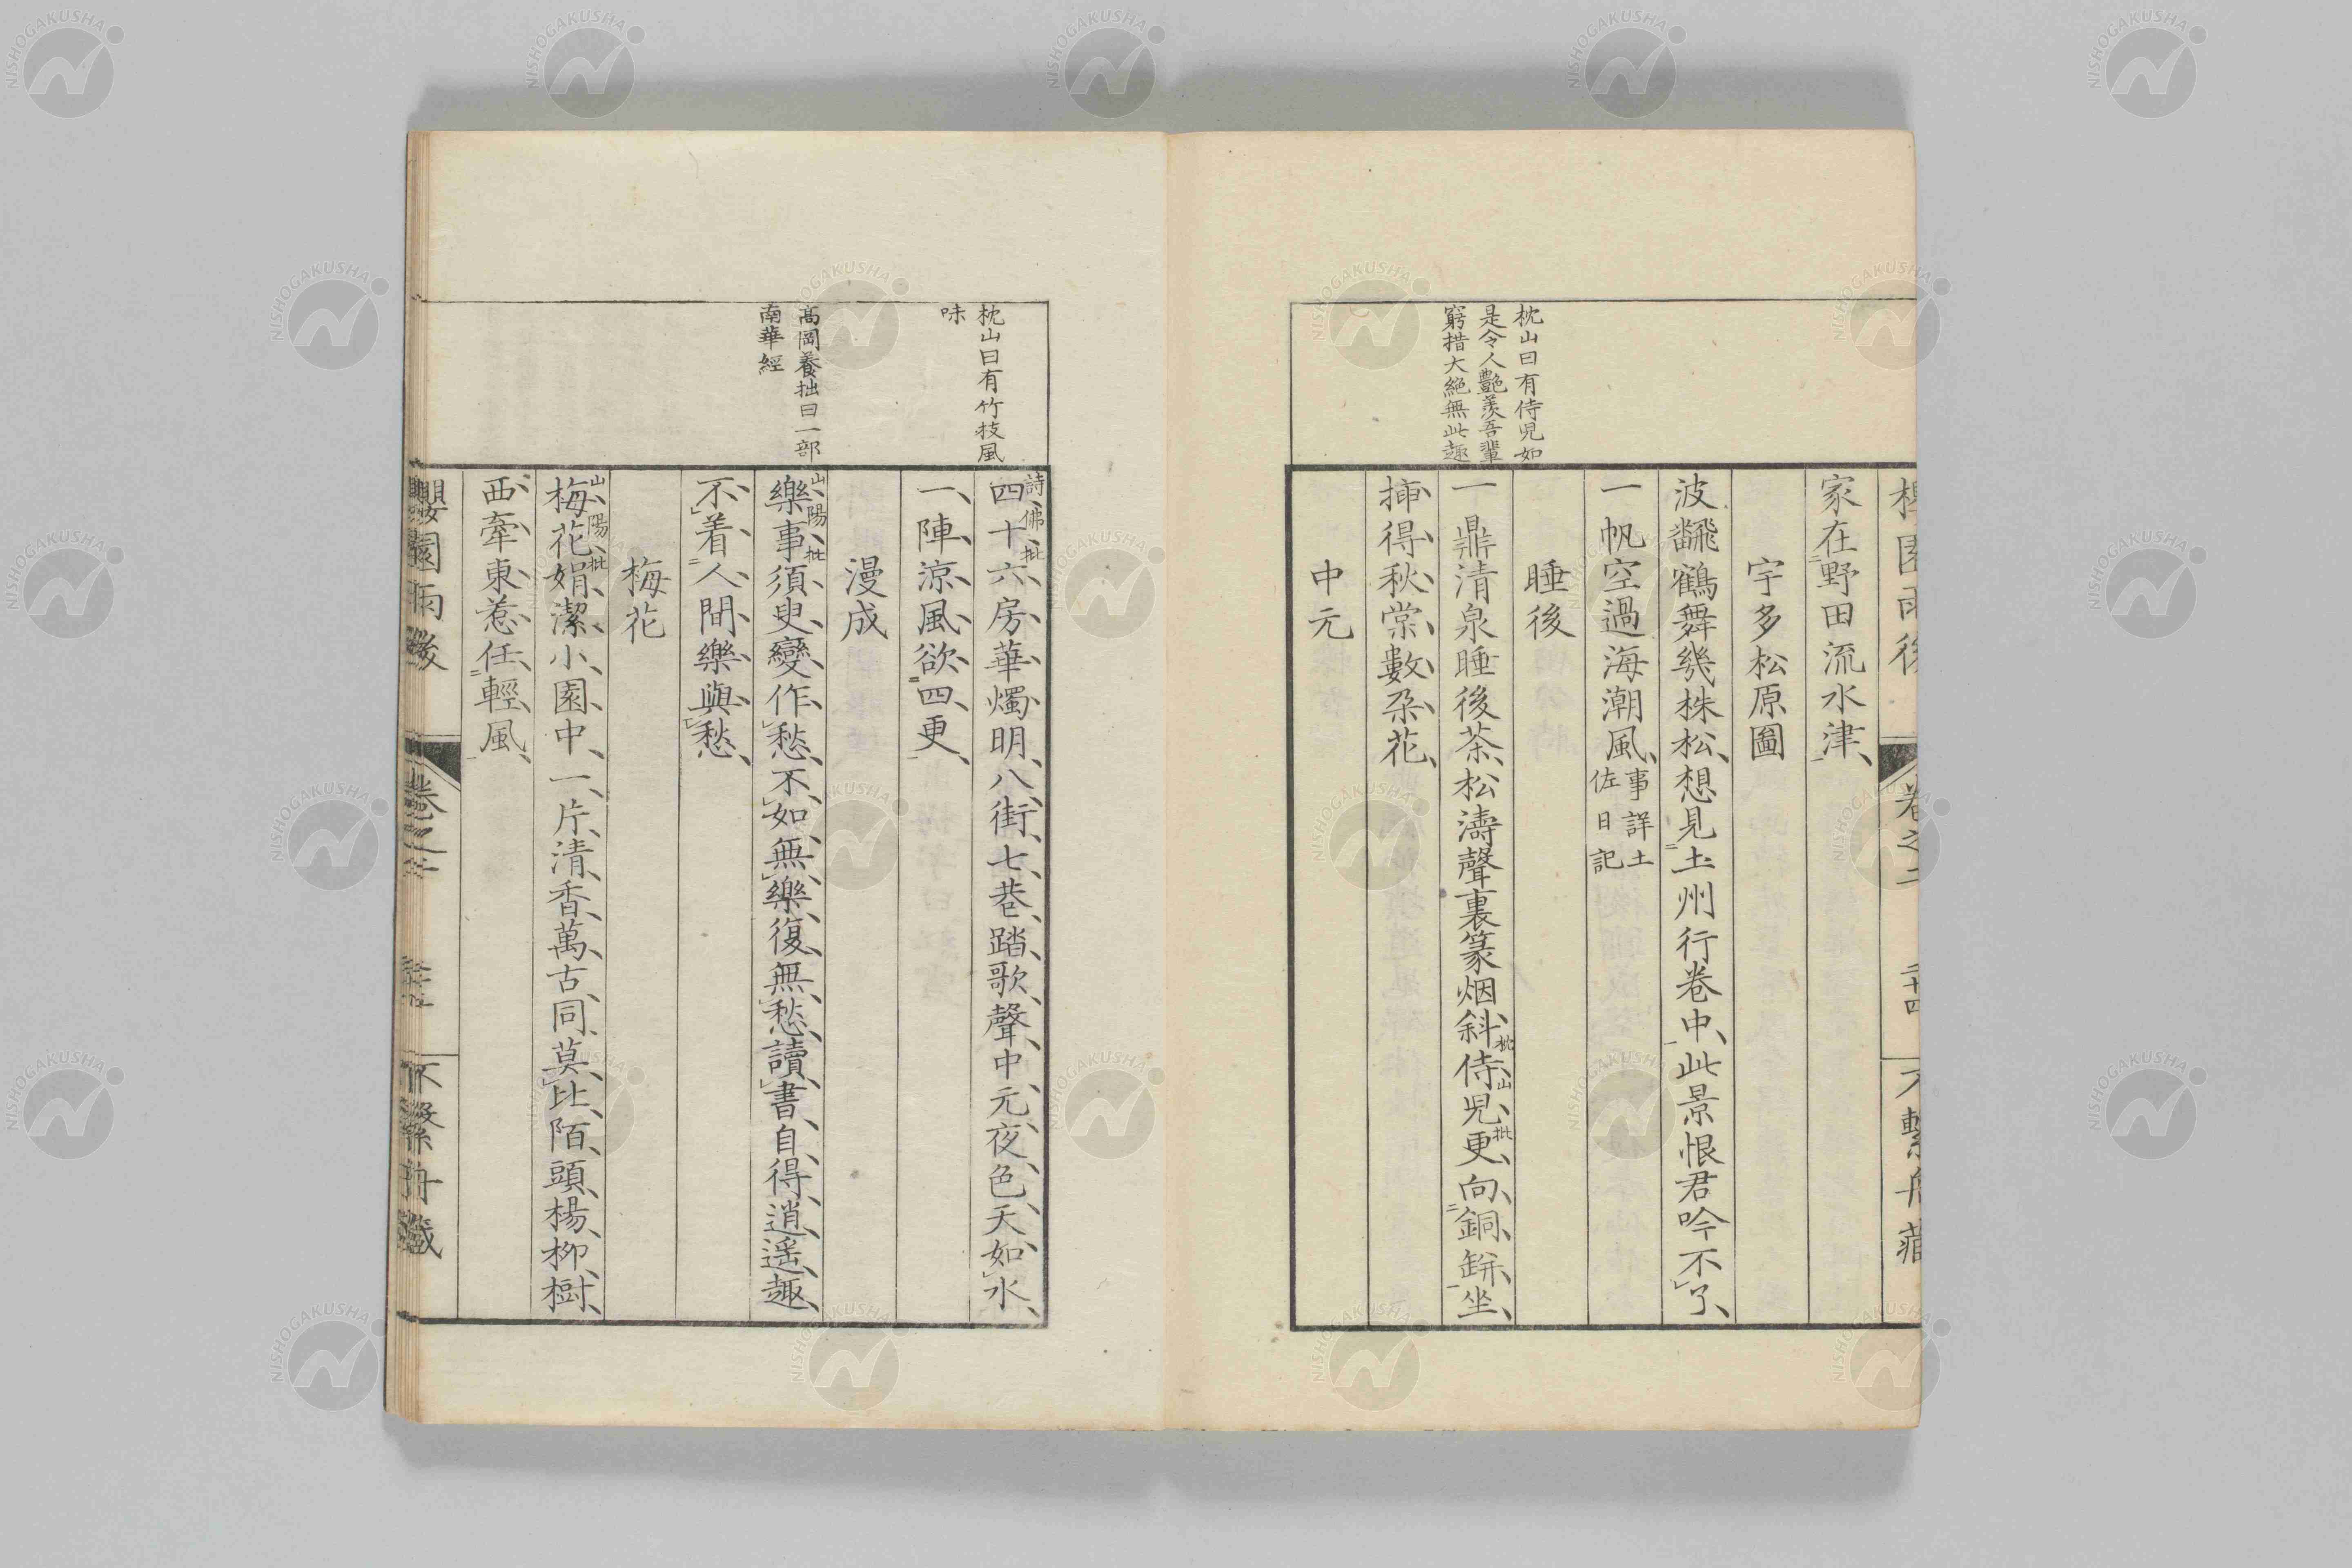 櫻園雨後 卷之二 二十四 不繫舟藏
家在野田流水津
宇多松原圖
波飜鶴舞幾株松想見土州行卷中此景恨君吟不了
一帆空過海潮風事詳土佐日記
睡後
枕山曰有侍児如
是令人艷羨吾輩
窮措大絶無此趣
一鼎清泉睡後茶松濤聲裏篆烟斜侍児更向銅缾坐
枕山批
挿得秋棠數朶花
中元
枕山曰有竹枝風
味
詩佛批
四十六房華燭明八街七巷踏歌聲中元夜色天如水
一陣涼風欲四更
漫成
高岡養拙曰一部
南華經
山陽批
樂事須臾變作愁不如無樂復無愁讀書自得逍遥趣
不着人間樂與愁
梅花
山陽批
梅花娟潔小園中一片清香萬古同莫比陌頭楊柳樹
西牽東惹任輕風
櫻園雨後 卷之二 不繫舟藏
NISHOGAKUSHA